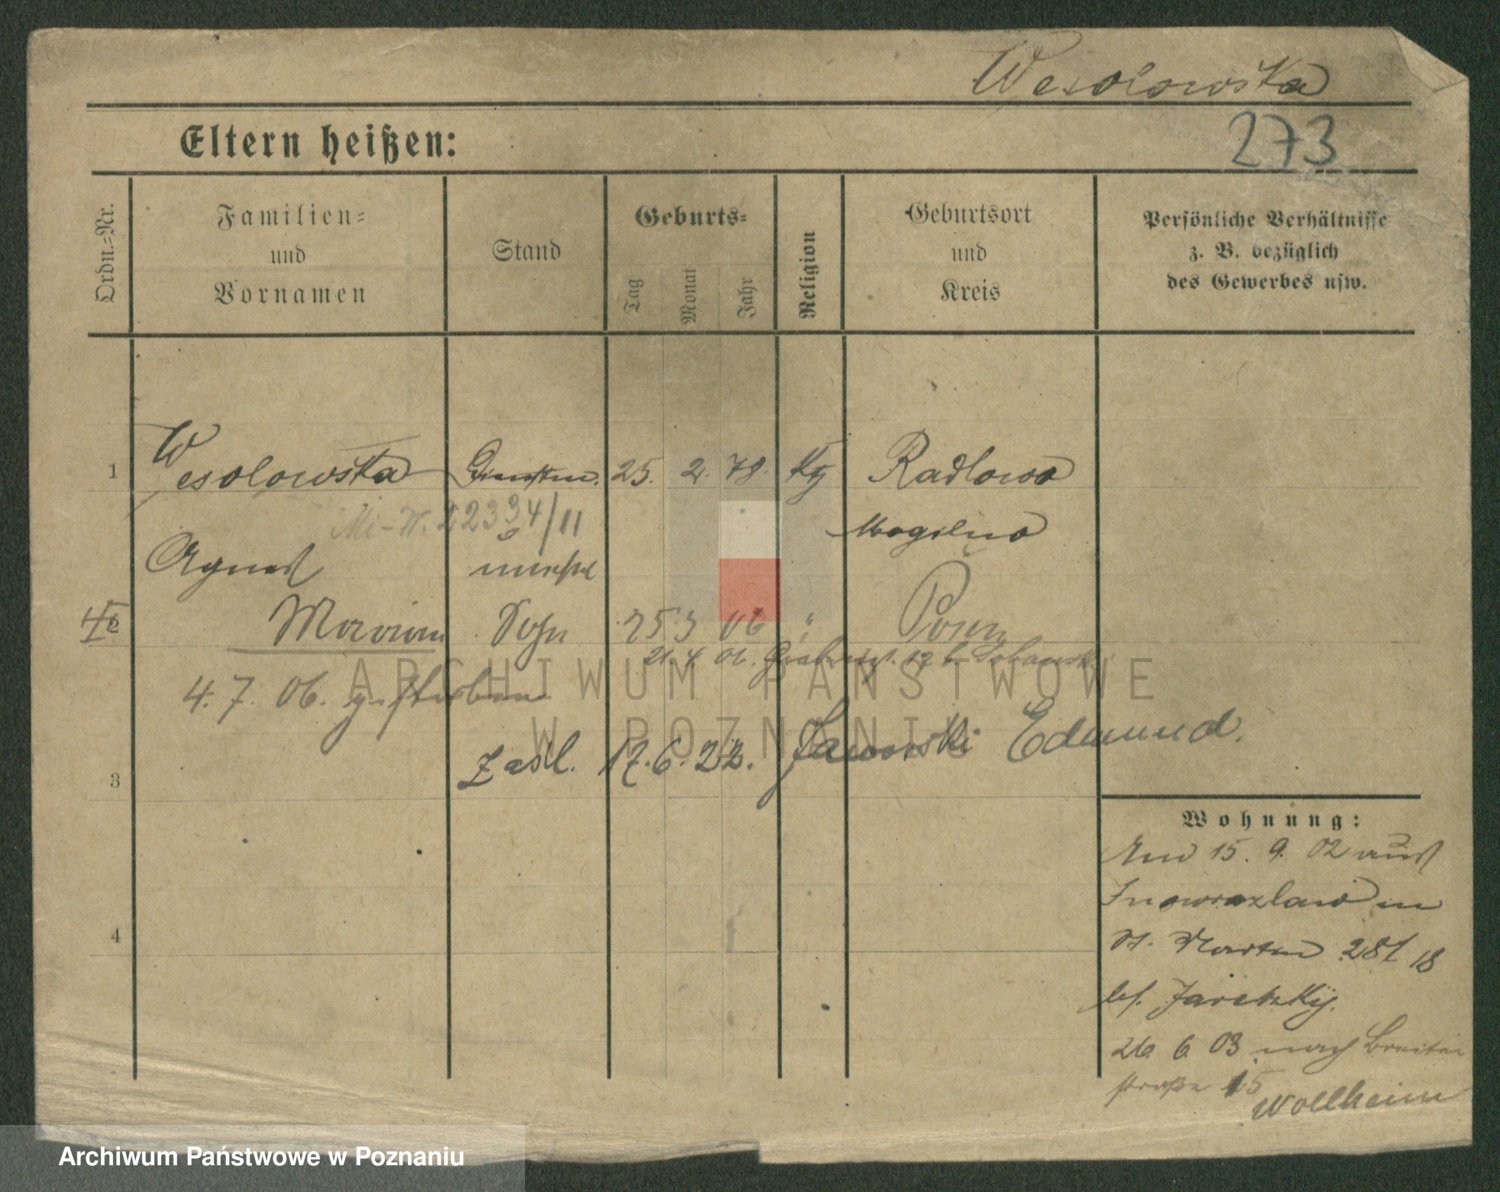 Wesolowska
Eltern heißen:
273
Ordn.-Nr.
Familien-
und
Vornamen
Stand
Geburts-
Tag
Monat
Jahr
Religion
Geburtsort
und
Kreis
Persönliche Verhältnisse
z. B. bezüglich
des Gewerbes usw.
1 Wesolowska 25. 2. 78. Radlowo
22334/11 Mogilno
Agnes
2 Maryan Sohn 25 3 06 " Posen
21. 4. 06.
4. 7. 06. gestorben
3 zasl. 17. 6. 22. Jaworski Edmund.
4
Wohnung:
15. 9. 02 aus
Inowrazlaw in
St. Martin 28
bei Jaretzky.
26. 6. 03 nach Breite
straße 15
Wollheim
ARCHIWUM PAŃSTWOWE
W POZNANIU
Archiwum Państwowe w Poznaniu